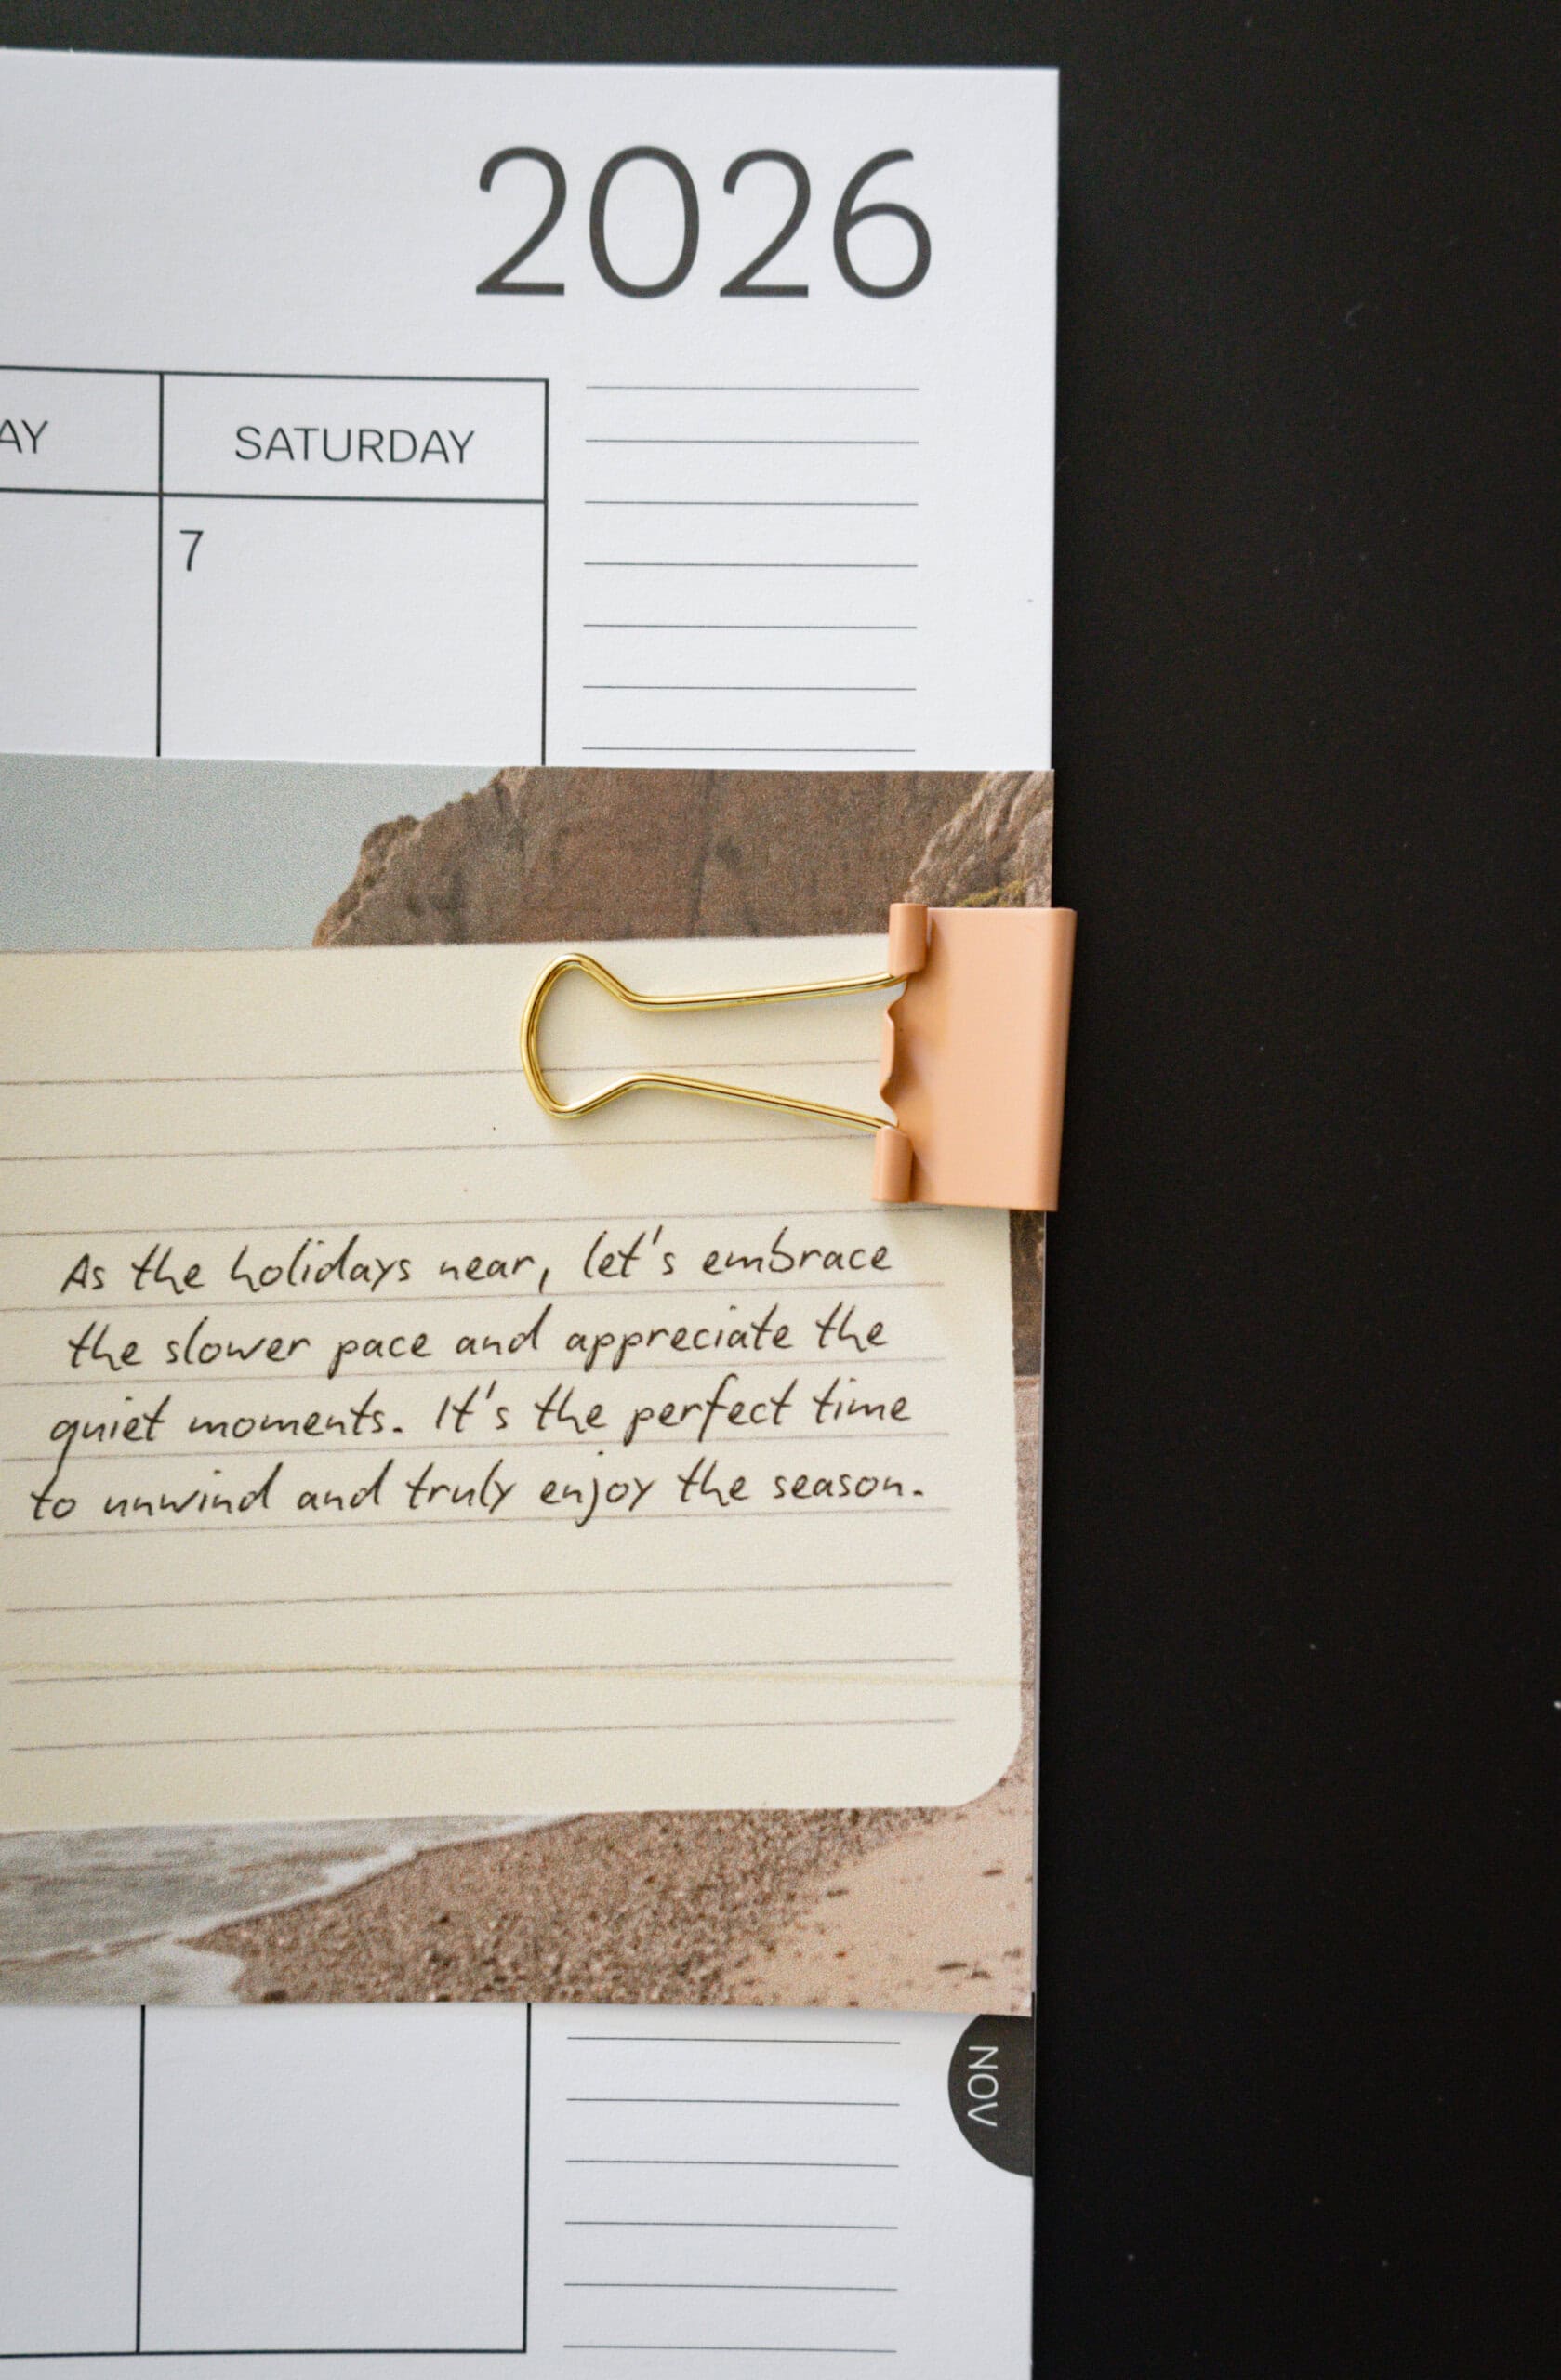 2026
AY SATURDAY
7
As the holidays near, let's embrace
the slower pace and appreciate the
quiet moments. It's the perfect time
to unwind and truly enjoy the season.
NOV